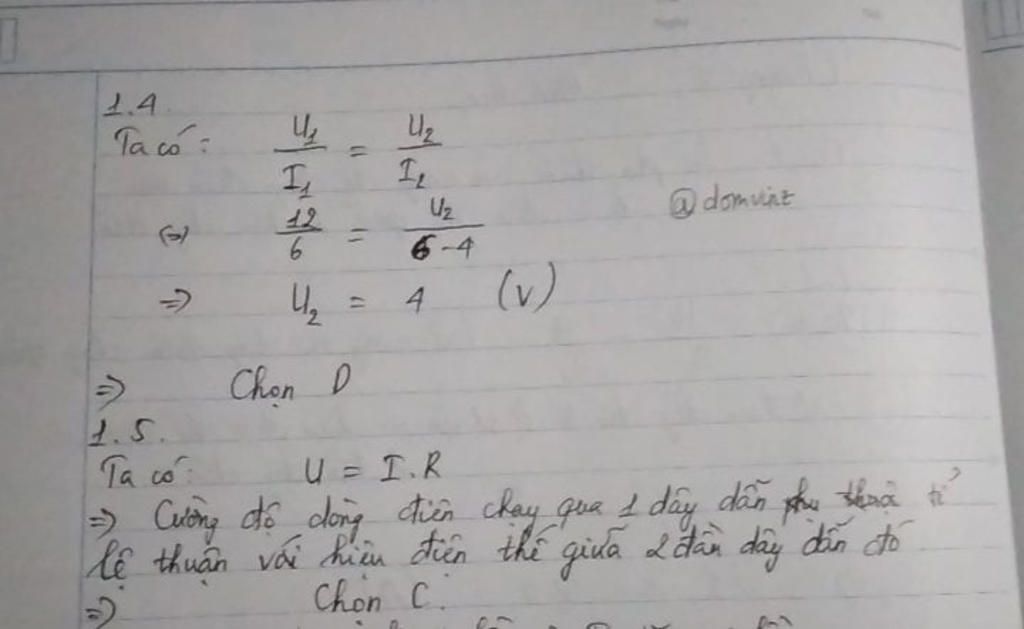 1.4
Ta có: U₁/I₁ = U₂/I₂
(=) 12/6 = U₂/(6-4)
@domvint
=> U₂ = 4 (V)
=> Chọn D
1.5.
Ta có: U = I.R
=> Cường độ dòng điện chạy qua 1 dây dẫn tỉ
lệ thuận với hiệu điện thế giữa 2 đần dây dẫn đó
=> Chọn C.